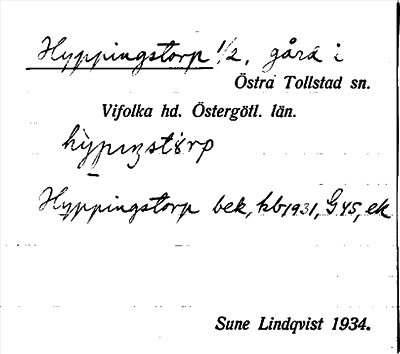 Hyppingstorp 1/2, gård i
Östra Tollstad sn.
Vifolka hd. Östergötl. län.
Hyppingstorp bek, kb 1931, G 45, ek
Sune Lindqvist 1934.